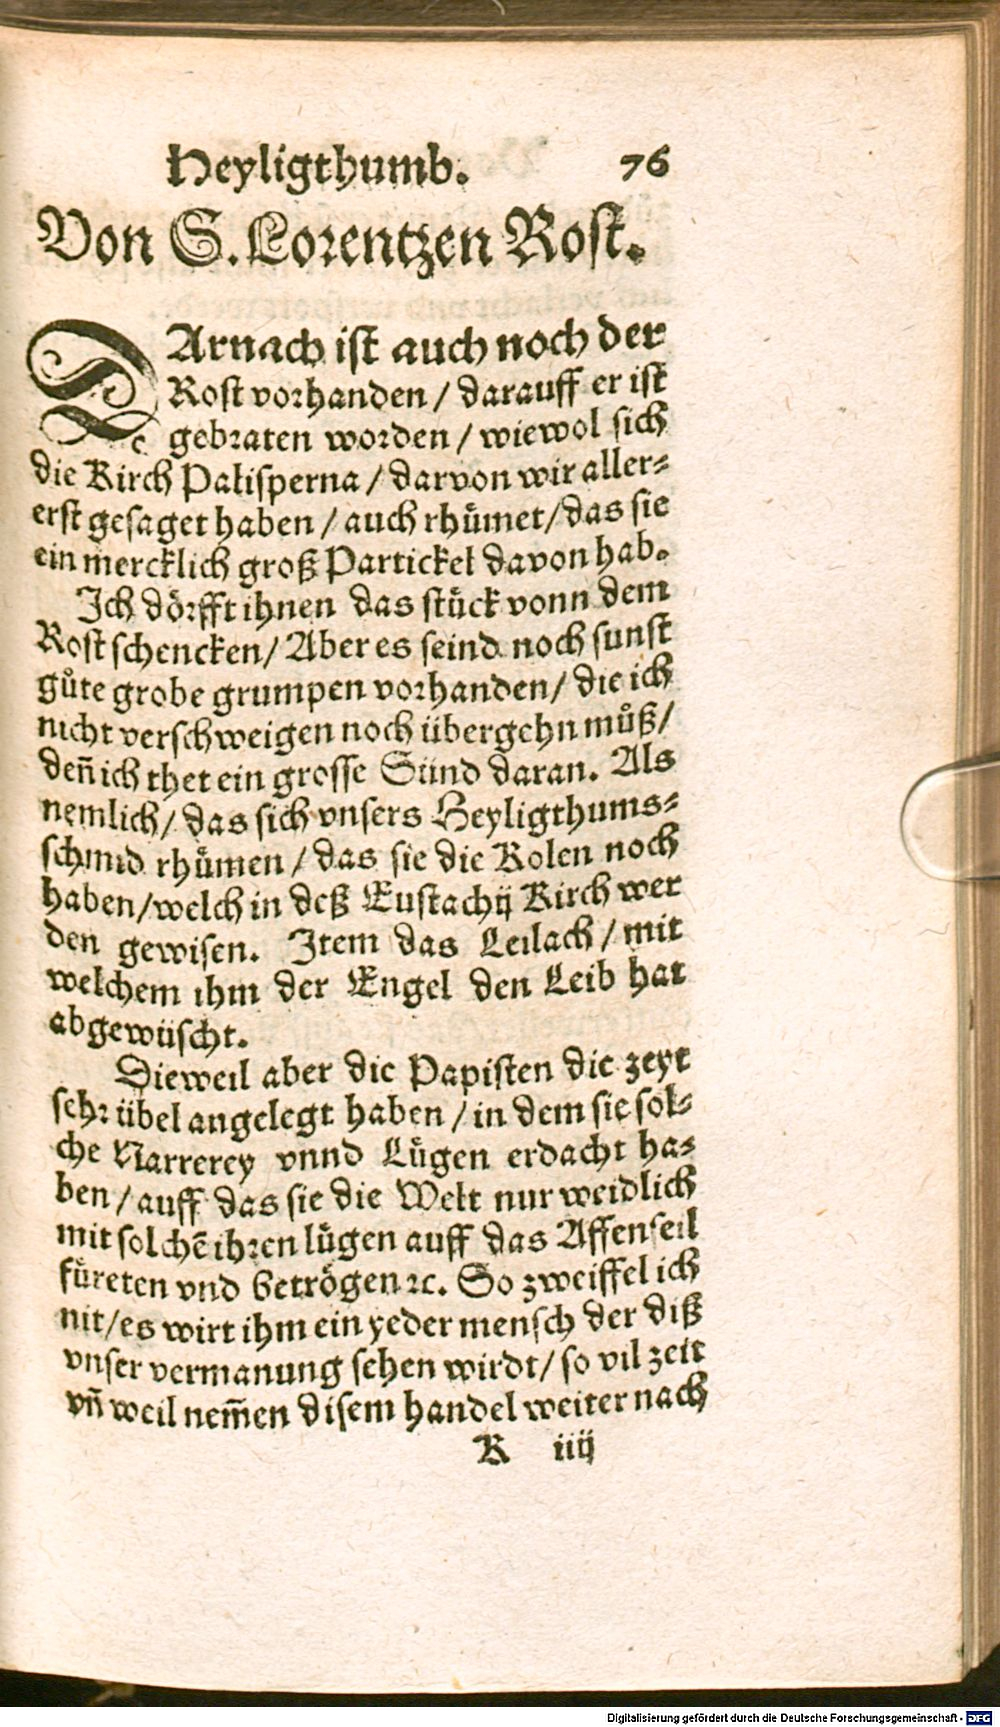 Heyligthumb. 76
Von S. Lorentzen Rost.
DArnach ist auch noch der
Rost vorhanden / darauff er ist
gebraten worden / wiewol sich
die Kirch Palisperna / darvon wir aller-
erst gesaget haben / auch rhuͤmet / das sie
ein mercklich groß Partickel davon hab.
Ich doͤrfft ihnen das stuͤck vonn dem
Rost schencken / Aber es seind noch sunst
guͦte grobe grumpen vorhanden / die ich
nicht verschweigen noch uͤbergehn muͦß /
deñ ich thet ein grosse Sünd daran. Als
nemlich / das sich vnsers Heyligthums-
schmid rhuͤmen / das sie die Kolen noch
haben / welch in deß Eustachij Kirch wer
den gewisen. Item das Leilach / mit
welchem ihm der Engel den Leib hat
abgewüscht.
Dieweil aber die Papisten die zeyt
sehr übel angelegt haben / in dem sie sol-
che Narrerey vnnd Luͤgen erdacht ha-
ben / auff das sie die Welt nur weidlich
mit solchẽ ihren luͤgen auff das Affenseil
fuͤreten vnd betroͤgen ꝛc. So zweiffel ich
nit / es wirt ihm ein yeder mensch der diß
vnser vermanung sehen wirdt / so vil zeit
vñ weil nem̃en disem handel weiter nach
K iiij
Digitalisierung gefördert durch die Deutsche Forschungsgemeinschaft - DFG